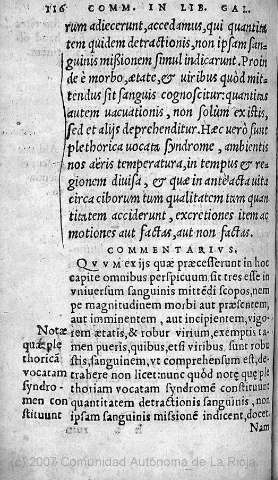 116 COMM. IN LIB. GAL.
rum adiecerunt, accedamus, qui quantita
tem quidem detractionis, non ipsam san
guinis missionem simul indicarunt. Proin
de è morbo, ætate, & uiribus quòd mit-
tendus sit sanguis cognoscitur: quantitas
autem uacuationis, non solùm ex istis,
sed et alijs deprehenditur. Hæc uerò sunt
plethorica uocata syndrome, ambientis
nos aëris temperatura, in tempus & re
gionem diuisa, & quæ in anteacta uita
circa ciborum tum qualitatem tum quan
titatem acciderunt, excretiones item ac
motiones aut factas, aut non factas.
COMMENTARIVS.
QVVM ex ijs quæ præcesserunt in hoc
capite omnibus perspicuum sit tres esse in
vniuersum sanguinis mittēdi scopos, nem
pe magnitudinem morbi aut præsentem,
aut imminentem, aut incipientem, vigo-
rem ætatis, & robur virium, exemptis ta-
men pueris, quibus, etsi viribus sunt robu
stis, sanguinem, vt comprehensum est, de-
trahere non licet: nunc quòd notę quę ple
thoriam vocatam syndromē constituunt
quantitatem detractionis sanguinis, non
ipsam sanguinis missionē indicent, docet.
Nam
Notæ
quæ ple
thoricā
vocatam
syndro-
men con
stituunt
(c) 2007 Comunidad Autónoma de La Rioja